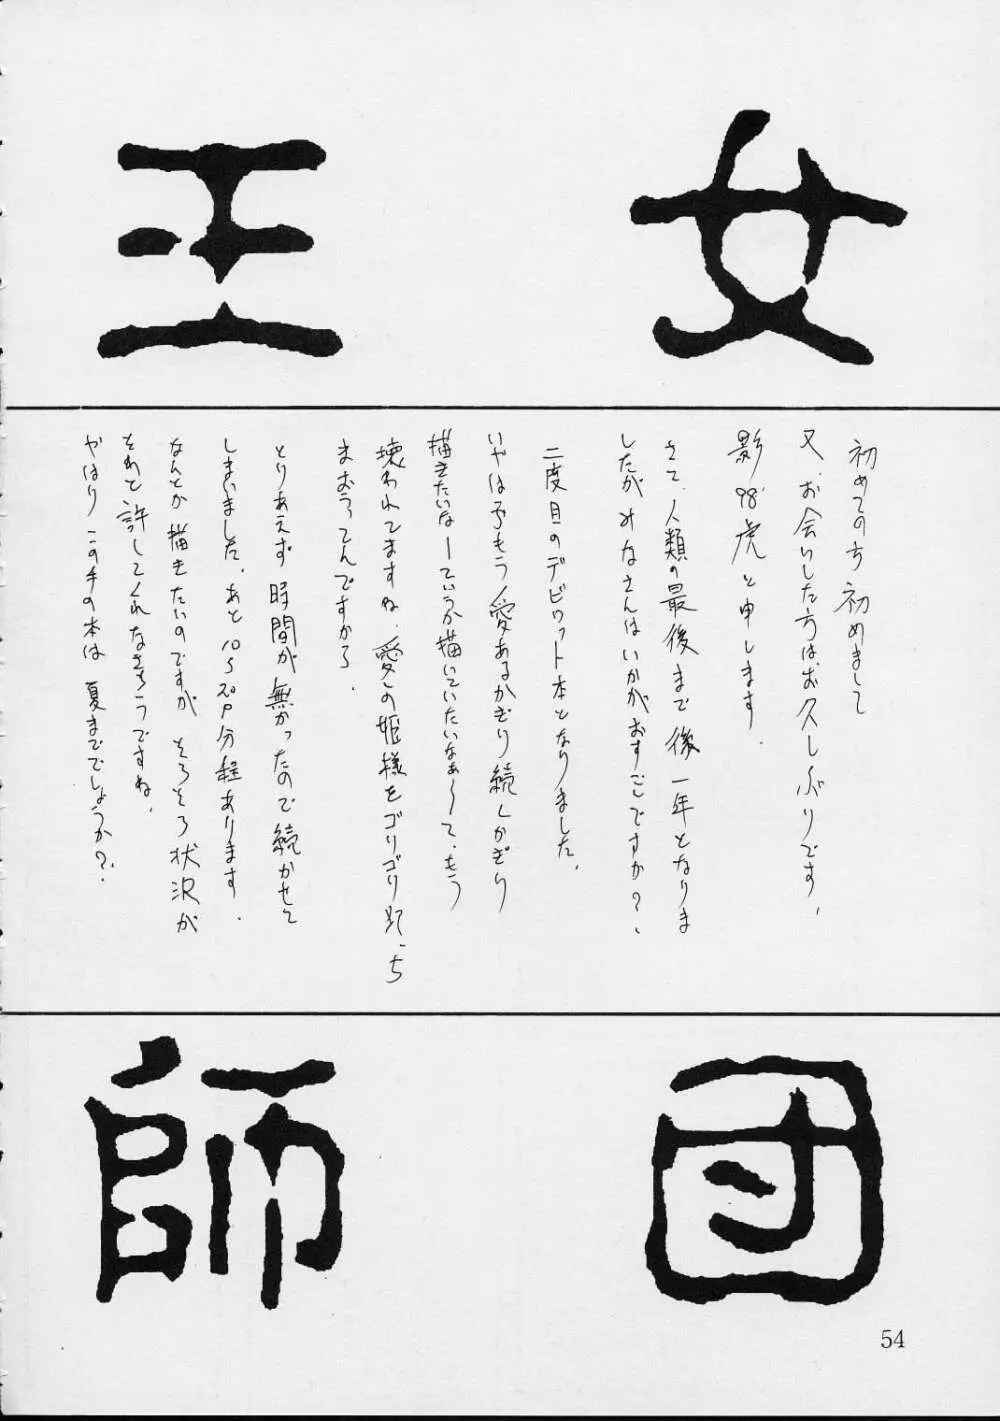 王女
初めての方 初めまして
又、お会いした方はお久しぶりです、
影98'虎と申します.
さて、人類の最後まで後一年となりま
したがみなさんはいかがおすごしですか?、
二度目のデビゥット本となりました.
いやは予もう愛あるかぎり続くかぎり
描きたいなーていうか描いていたいなぁ〜て、もう
壊われてますね、愛の姫様をゴリゴリ
まおうってんですから.
とりあえず時間が無かったので続かせて
しまいました、あと10〜20P分程あります.
なんとか描きたいのですが そろそろ状況が
それを許してくれなさそうですね、
やはりこの手の本は夏まででしょうか?.
師団
54